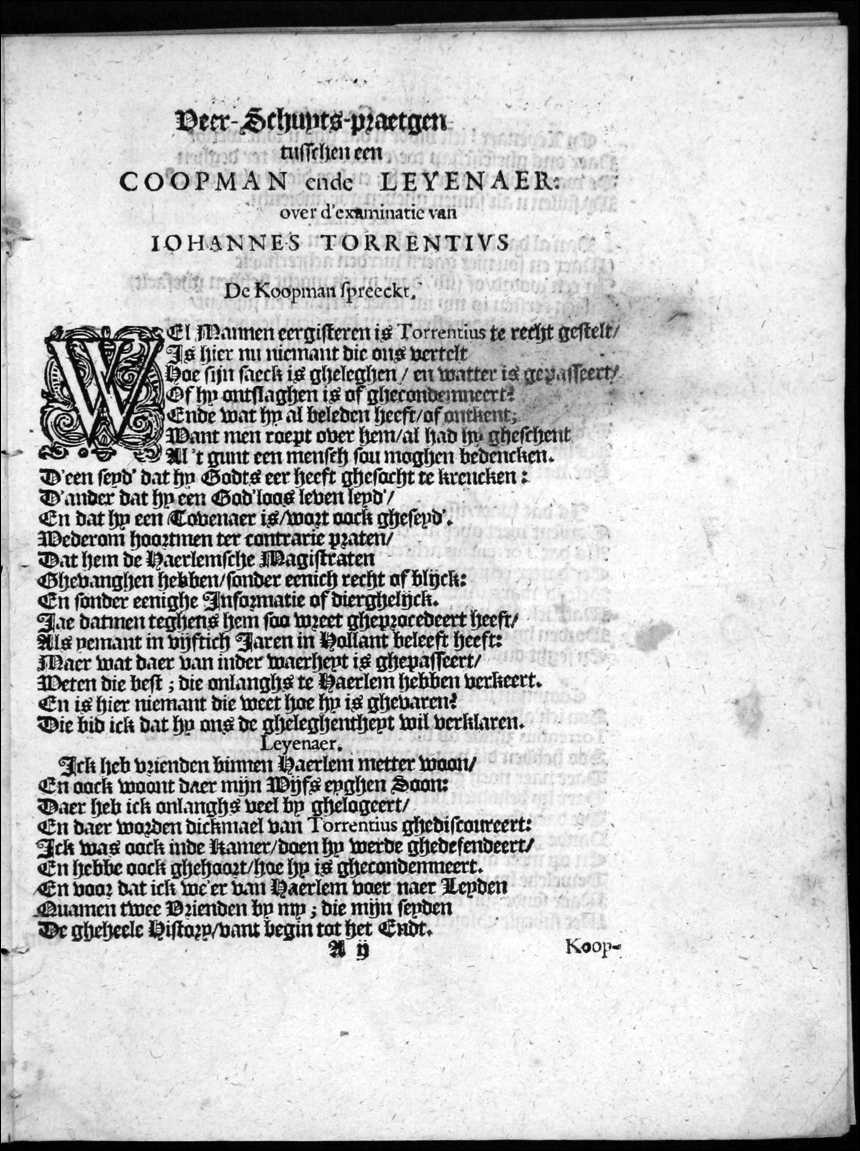 Veer-Schuyts-praetgen
tusschen een
COOPMAN ende LEYENAER:
over d'examinatie van
IOHANNES TORRENTIVS
De Koopman spreeckt.
WEl Mannen eergisteren is Torrentius te recht gestelt/
Is hier nu niemant die ons vertelt
Hoe sijn saeck is gheleghen / en watter is gepasseert/
Of hy ontslaghen is of ghecondemneert?
Ende wat hy al beleden heeft/of ontkent;
Want men roept over hem/al had hy gheschent
Al 't gunt een mensch sou moghen bedencken.
D'een seyd' dat hy Godts eer heeft ghesocht te krencken:
D'ander dat hy een God'loos leven leyd'/
En dat hy een Tovenaer is/wort oock gheseyd'.
Wederom hoortmen ter contrarie praten/
Dat hem de Haerlemsche Magistraten
Ghevanghen hebben/sonder eenich recht of blijck:
En sonder eenighe Informatie of dierghelijck.
Jae datmen teghens hem soo wreet gheprocedeert heeft/
Als yemant in vijftich Jaren in Hollant beleeft heeft:
Maer wat daer van inder waerheyt is ghepasseert/
Weten die best; die onlanghs te Haerlem hebben verkeert.
En is hier niemant die weet hoe hy is ghevaren?
Die bid ick dat hy ons de gheleghentheyt wil verklaren.
Leyenaer.
Ick heb vrienden binnen Haerlem metter woon/
En oock woont daer mijn Wijfs eyghen Soon:
Daer heb ick onlanghs veel by ghelogeert/
En daer worden dickmael van Torrentius ghediscoureert:
Ick was oock inde Kamer/doen hy werde ghedefendeert/
En hebbe oock ghehoort/hoe hy is ghecondemneert.
En voor dat ick we'er van Haerlem voer naer Leyden
Quamen twee Vrienden by my; die mijn seyden
De gheheele History/vant begin tot het Endt.
A ij
Koop-